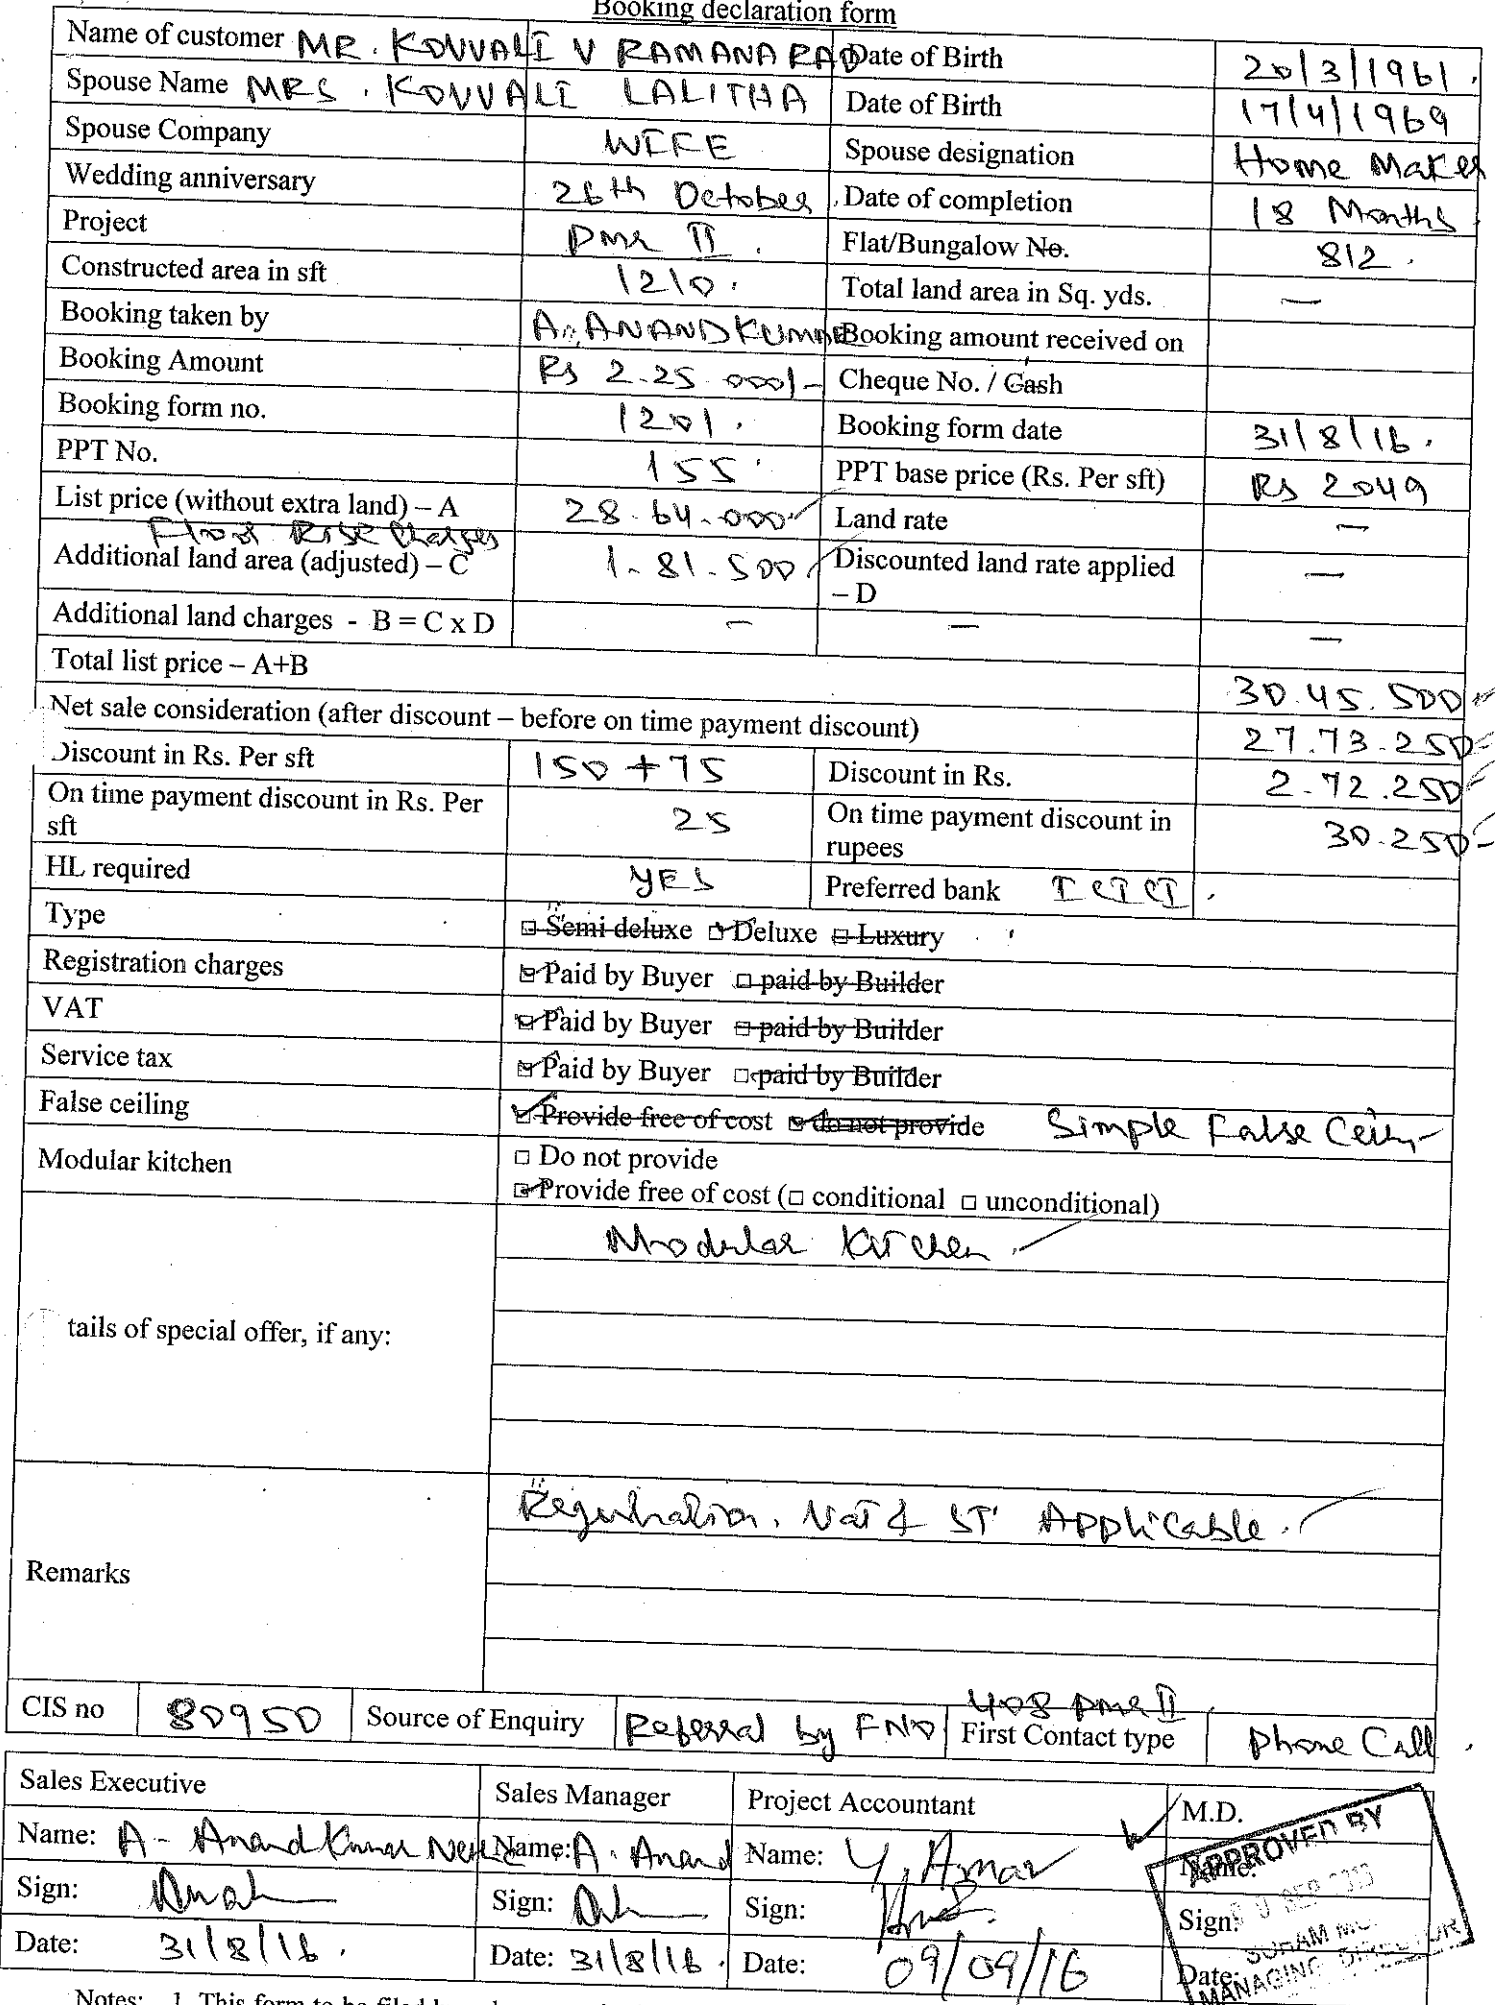 Booking declaration form
Name of customer MR. KOVVALI V RAMANA RAO Date of Birth 20/3/1961.
Spouse Name MRS. KOVVALI LALITHA Date of Birth 17/4/1969
Spouse Company WIFE Spouse designation Home Maker
Wedding anniversary 26th October. Date of completion 18 Months.
Project PMR II. Flat/Bungalow No. 812.
Constructed area in sft 1210. Total land area in Sq. yds. —
Booking taken by A. ANAND KUMAR Booking amount received on
Booking Amount Rs 2.25.000/- Cheque No. / Cash
Booking form no. 1201. Booking form date 31/8/16.
PPT No. 155 PPT base price (Rs. Per sft) Rs 2049
List price (without extra land) – A 28.64.000 Land rate —
Floor Rise Charges
Additional land area (adjusted) – C 1.81.500 Discounted land rate applied – D —
Additional land charges - B = C x D — — —
Total list price – A+B 30.45.500
Net sale consideration (after discount – before on time payment discount) 27.73.250
Discount in Rs. Per sft 150 + 75 Discount in Rs. 2.72.250
On time payment discount in Rs. Per sft 25 On time payment discount in rupees 30.250
HL required YES Preferred bank ICICI.
Type ☐ Semi deluxe ☑ Deluxe ☐ Luxury
Registration charges ☑ Paid by Buyer ☐ paid by Builder
VAT ☑ Paid by Buyer ☐ paid by Builder
Service tax ☑ Paid by Buyer ☐ paid by Builder
False ceiling ☑ Provide free of cost ☑ do not provide Simple False Ceiling
Modular kitchen ☐ Do not provide
☑ Provide free of cost (☐ conditional ☐ unconditional)
Modular Kitchen.
tails of special offer, if any:
Registration, VAT & ST Applicable.
Remarks
408 PMR II.
CIS no 80950 Source of Enquiry Referral by FND First Contact type Phone Call.
Sales Executive Sales Manager Project Accountant M.D.
Name: A. Anand Kumar Name: A. Anand Name: Y. Amar Name:
Sign: Sign: Sign: Sign:
Date: 31/8/16. Date: 31/8/16. Date: 09/09/16 Date:
APPROVED BY
SEP
SOHAM
MANAGING DIRECTOR
Notes: 1. This form to be filed